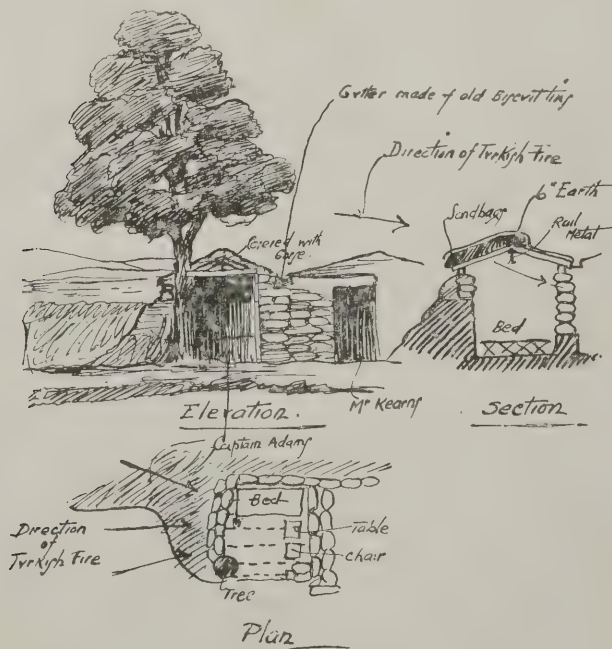 Gutter made of old Biscvit tins
Direction of Tvrkish Fire
6" Earth
Sandbags
Rail
Metal
Covered with
Gorse.
Bed
Elevation.
Mr Kearns
Section
Captain Adams
Bed
Direction
of
Tvrkish Fire
Table
Chair
Tree
Plan